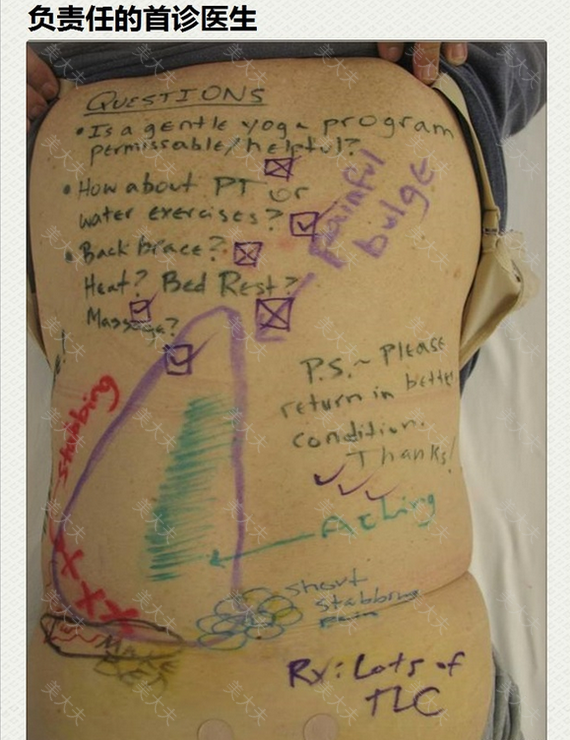 负责任的首诊医生
QUESTIONS
• Is a gentle yoga program
permissable/helpful?
• How about PT or
water exercises?
• Back brace?
Heat? Bed Rest?
Massage?
Painful
bulge
P.S. ~ Please
return in better
condition.
Thanks!
stabbing
Aching
short
stabbing
pain
XXXX
Rx: Lots of
TLC
美大夫